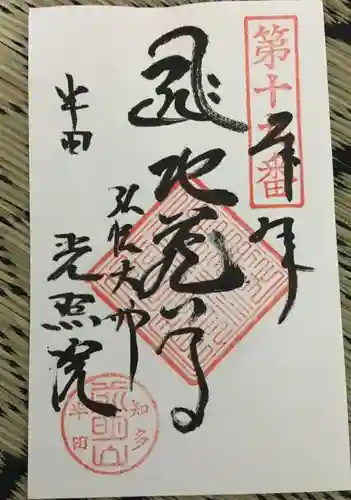 第十九番
奉拝
地蔵尊
弘法大師
半田
光照院
知多
半田